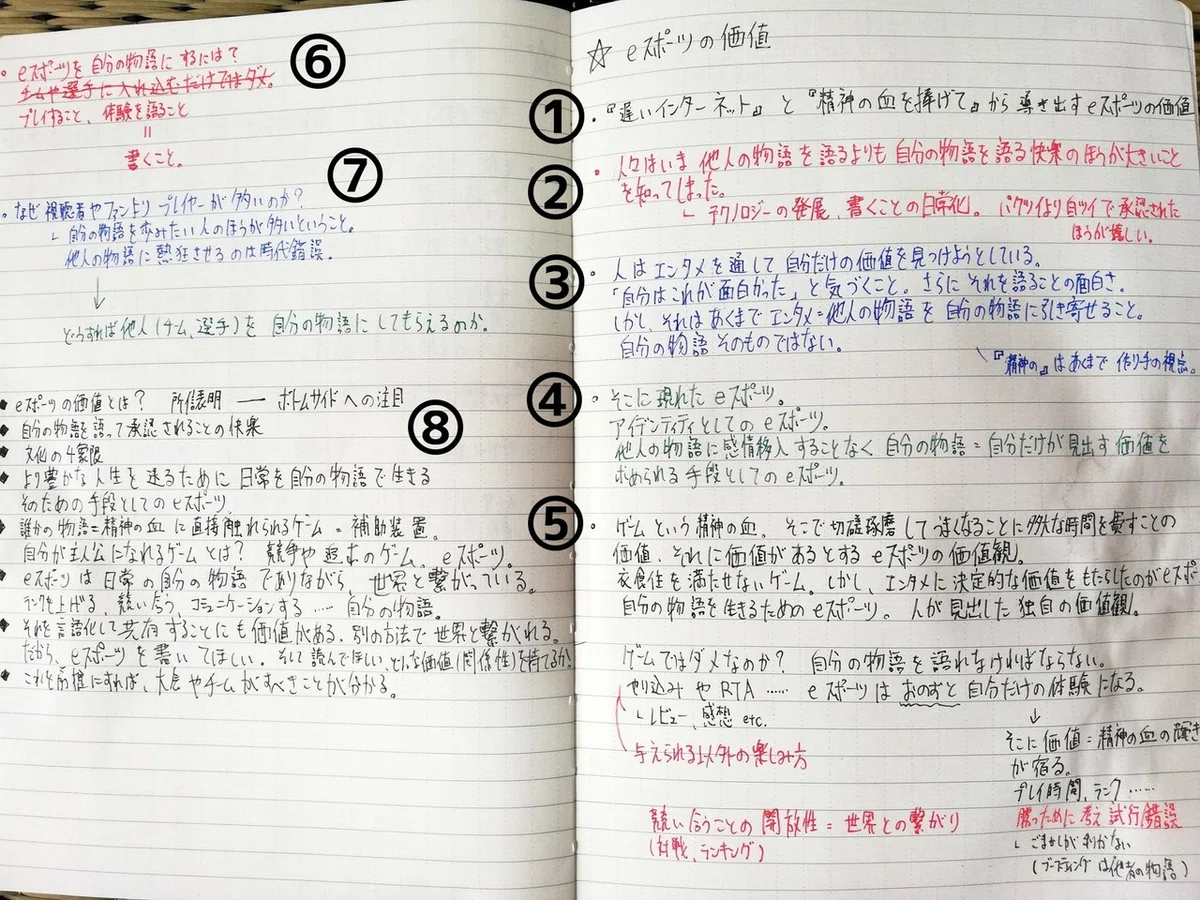 ☆ eスポーツの価値
①
・『遅いインターネット』と『精神の血を捧げて』から導き出すeスポーツの価値
②
・人々はいま他人の物語を語るよりも自分の物語を語る快楽のほうが大きいこと
を知ってしまった。
└ テクノロジーの発展、書くことの日常化。パクツイより自ツイで承認された
ほうが嬉しい。
③
・人はエンタメを通して自分だけの価値を見つけようとしている。
「自分はこれが面白かった」と気づくこと。さらにそれを語ることの面白さ。
しかし、それはあくまでエンタメ=他人の物語を自分の物語に引き寄せること。
自分の物語そのものではない。
『精神の』はあくまで作り手の視点。
④
・そこに現れたeスポーツ。
アイデンティティとしてのeスポーツ。
他人の物語に感情移入することなく自分の物語=自分だけが見出す価値を
求められる手段としてのeスポーツ。
⑤
・ゲームという精神の血。そこで切磋琢磨してうまくなることに多大な時間を費すことの
価値、それに価値があるとするeスポーツの価値観。
衣食住を満たせないゲーム。しかし、エンタメに決定的な価値をもたらしたのがeスポー
自分の物語を生きるためのeスポーツ。人が見出した独自の価値観。
ゲームではダメなのか? 自分の物語を語れなければならない。
やり込みやRTA…… eスポーツはおのずと自分だけの体験になる。
└ レビュー、感想 etc.
与えられる以外の楽しみ方
↓
そこに価値=精神の血の輝き
が宿る。
プレイ時間、ランク……
勝つために考え試行錯誤
└ ごまかしがきかない
(ブースティングは他者の物語)
競い合うことの開放性=世界との繋がり
(対戦、ランキング)
⑥
・eスポーツを自分の物語にするには?
チームや選手に入れ込むだけではダメ。
プレイすること、体験を語ること
||
書くこと。
⑦
・なぜ視聴者やファンよりプレイヤーが多いのか?
└ 自分の物語を歩みたい人のほうが多いということ。
他人の物語に熱狂させるのは時代錯誤。
↓
どうすれば他人(チーム、選手)を自分の物語にしてもらえるのか。
⑧
◆ eスポーツの価値とは? 所信表明 ― ボトムサイドへの注目
◆ 自分の物語を語って承認されることの快楽
◆ 文化の4象限
◆ より豊かな人生を送るために日常を自分の物語で生きる
そのための手段としてのeスポーツ
◆ 誰かの物語=精神の血に直接触れられるゲーム=補助装置。
自分が主人公になれるゲームとは? 競争や追求のゲーム。eスポーツ。
◆ eスポーツは日常の自分の物語でありながら、世界と繋がっている。
ランクを上げる、競い合う、コミュニケーションする……自分の物語。
◆ それを言語化して共有することにも価値がある。別の方法で世界と繋がれる。
だから、eスポーツを書いてほしい。そして読んでほしい。どんな価値(関係性)を持てるか。
◆ これを前提にすれば、大会やチームがすべきことが分かる。